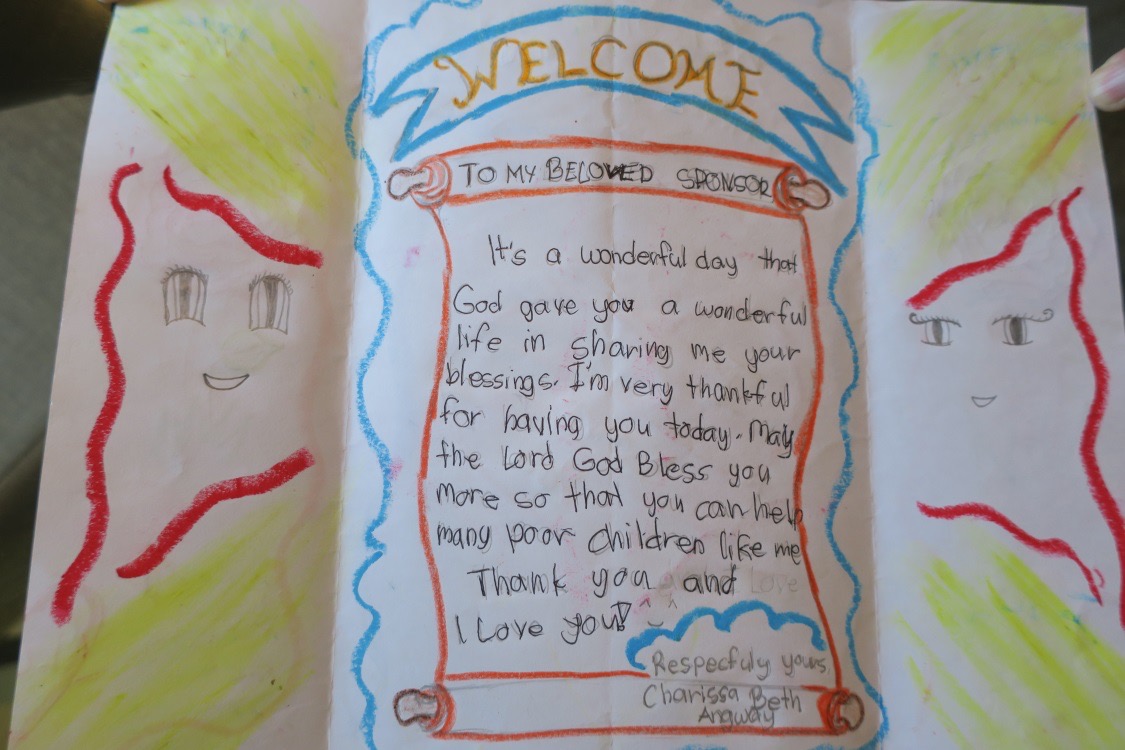 WELCOME
TO MY BELOVED SPONSOR
It's a wonderful day that
God gave you a wonderful
life in sharing me your
blessings. I'm very thankful
for having you today. May
the Lord God Bless you
more so that you can help
many poor children like me
Thank you and Love
I Love you!
Respecfuly yours
Charissa Beth
Angway